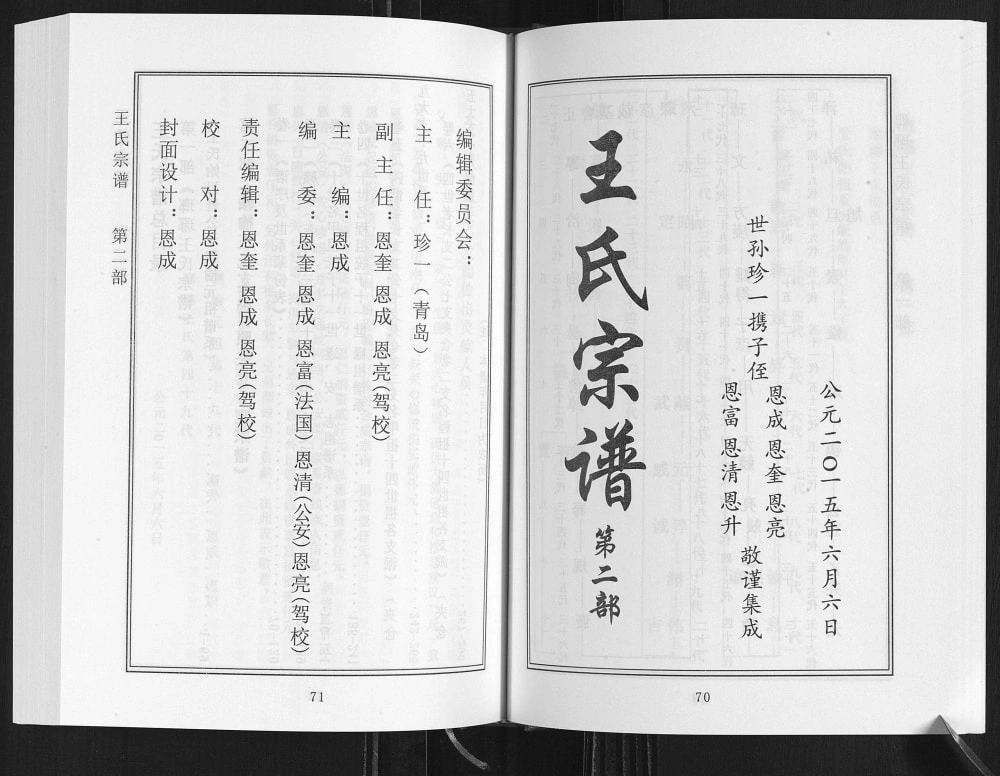 公元二〇一五年六月六日
世孙珍一携子侄
恩成 恩奎 恩亮
恩富 恩清 恩升
敬谨集成
王氏宗谱
第二部
70
编辑委员会：
主 任：珍一（青岛）
副 主 任：恩奎 恩成 恩亮(驾校)
主 编：恩成
编 委：恩奎 恩成 恩富(法国)恩清(公安)恩亮(驾校)
责任编辑：恩奎 恩成 恩亮(驾校)
校 对：恩成
封面设计：恩成
王氏宗谱 第二部
71